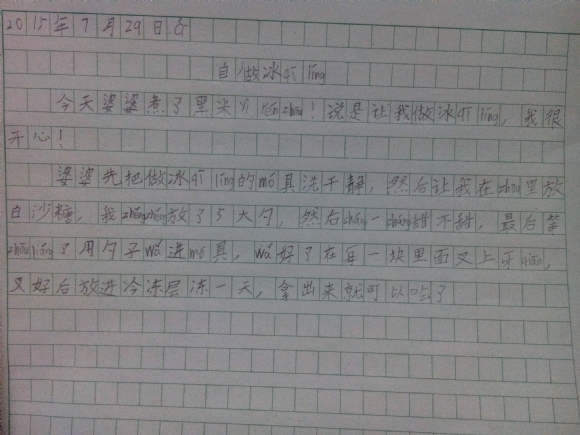 2015年7月29日
自做冰qí líng
今天婆婆煮了黑米yì rén zhōu！说是让我做冰qí líng，我很
开心！
婆婆先把做冰qí líng的mó具洗干静，然后让我在zhōu里放
白沙糖，我zhěngzhěng放了5大勺，然后cháng一cháng甜不甜，最后等
zhōu liáng了用勺子wǎ进mó具，wǎ好了在每一块里面叉上牙qiān，
叉好后放进冷冻层冻一天，拿出来就可以吃了